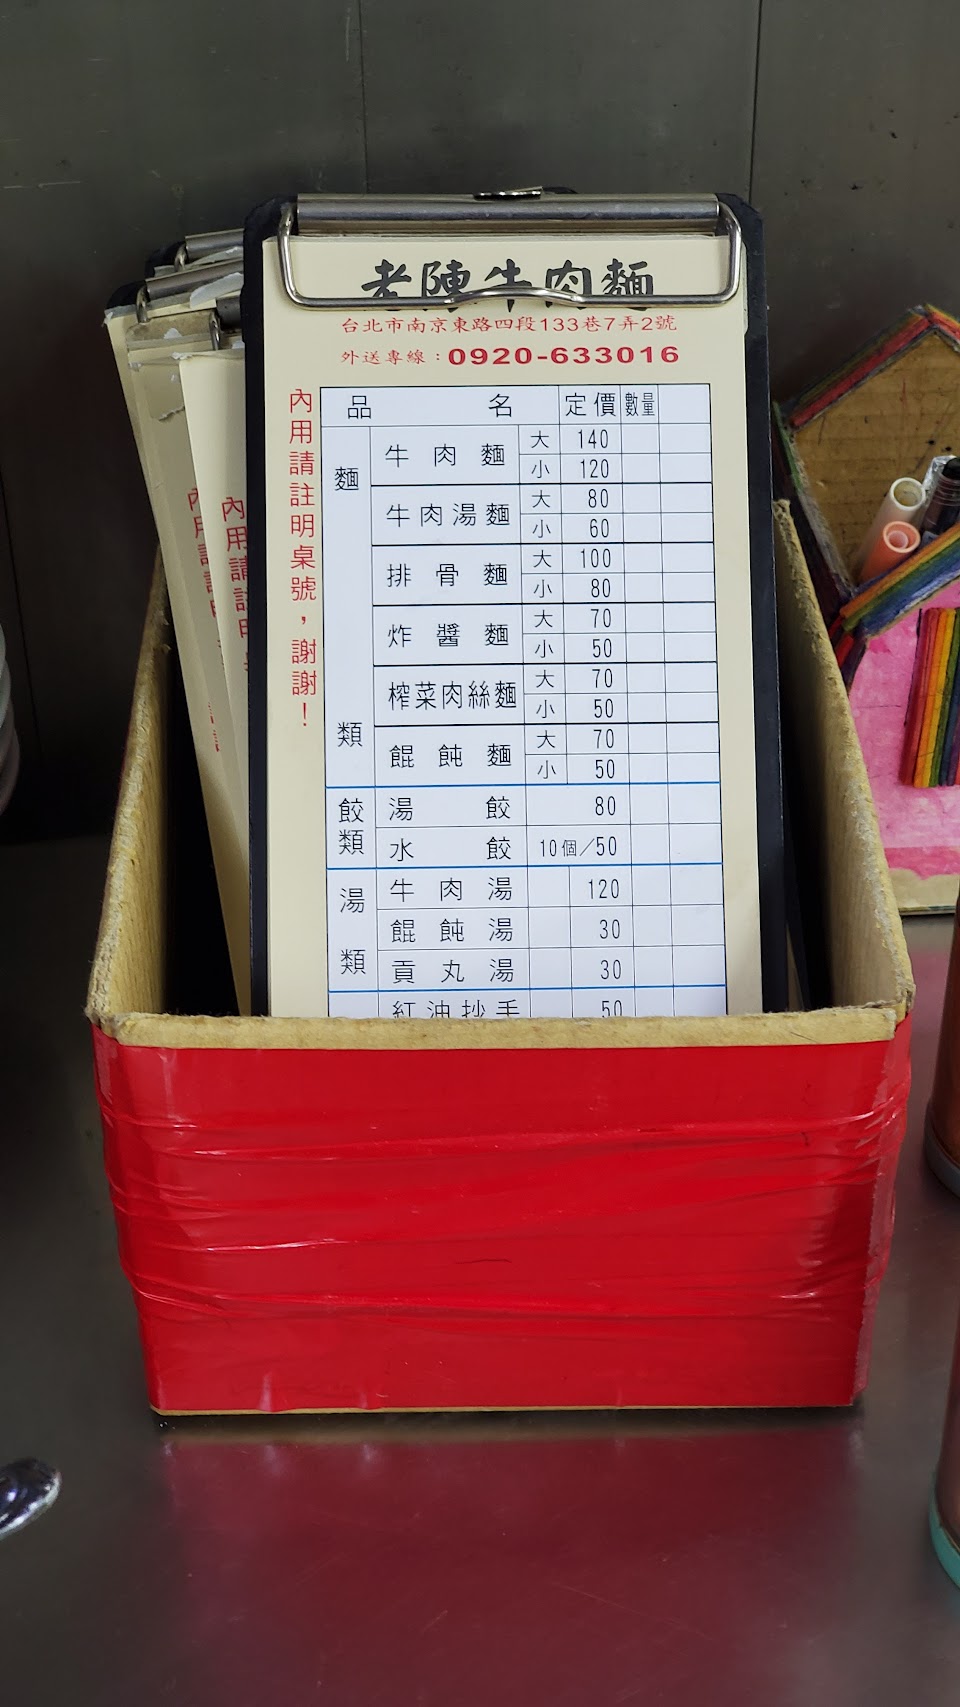 老陳牛肉麵
台北市南京東路四段133巷7弄2號
外送專線：0920-633016
內用請註明桌號，謝謝！
品名 定價 數量
麵類
牛肉麵 大 140
小 120
牛肉湯麵 大 80
小 60
排骨麵 大 100
小 80
炸醬麵 大 70
小 50
榨菜肉絲麵 大 70
小 50
餛飩麵 大 70
小 50
餃類
湯餃 80
水餃 10個/50
湯類
牛肉湯 120
餛飩湯 30
貢丸湯 30
紅油抄手 50
內用請註明
內用請註明